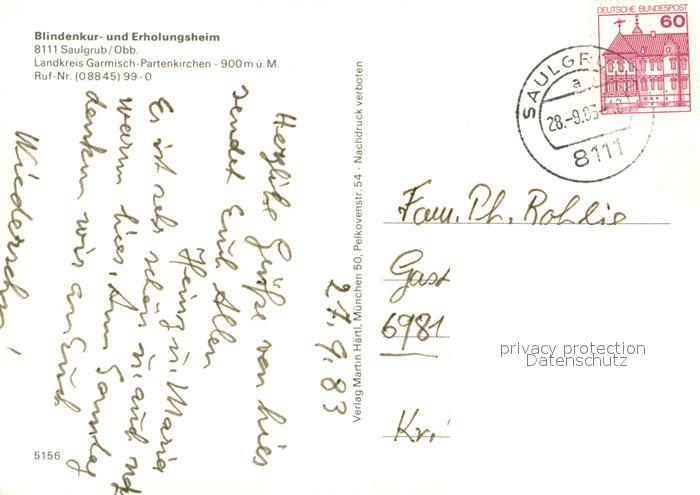 Blindenkur- und Erholungsheim
8111 Saulgrub/Obb.
Landkreis Garmisch-Partenkirchen - 900 m ü. M.
Ruf-Nr. (0 88 45) 99 - 0
DEUTSCHE BUNDESPOST
60
SAULGR
a
28.-9.83-18
8111
27.9.83
Herzliche Grüße von hier
sendet Euch Allen
Heinz u. Maria
Es ist sehr schön u. auch noch
warm hier. Am Samstag
denken wir an Euch
Wiedersehn,
Verlag Martin Härtl, München 50, Pelkovenstr. 54 - Nachdruck verboten
Fam. Ph. Rohdie
Gast
6981
Kr.
privacy protection
Datenschutz
5156